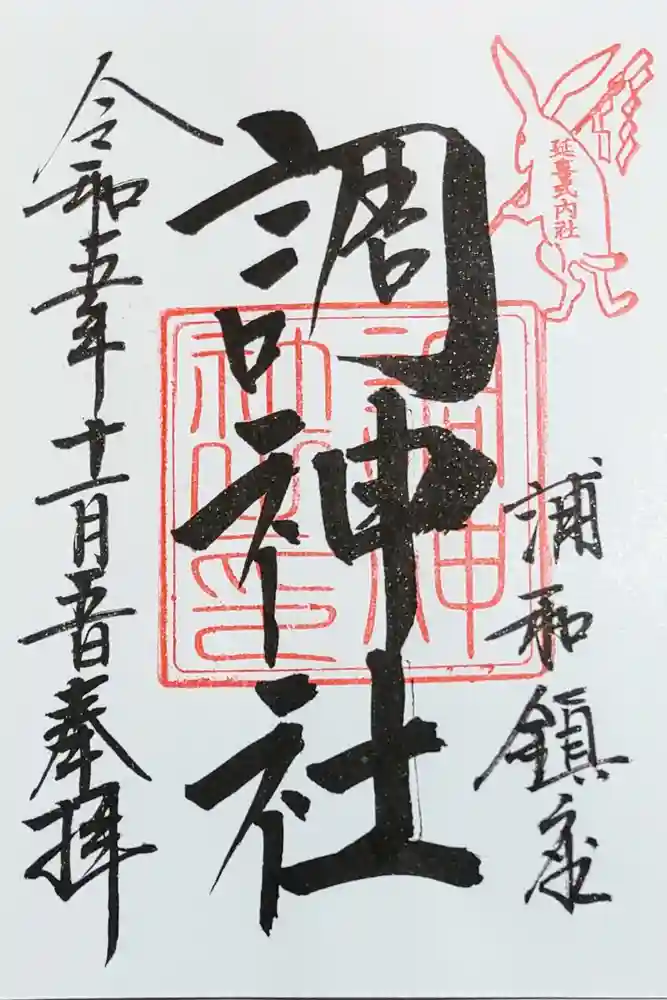 延喜式内社
浦和鎮座
調神社
調神
社之印
令和五年十一月五日奉拝